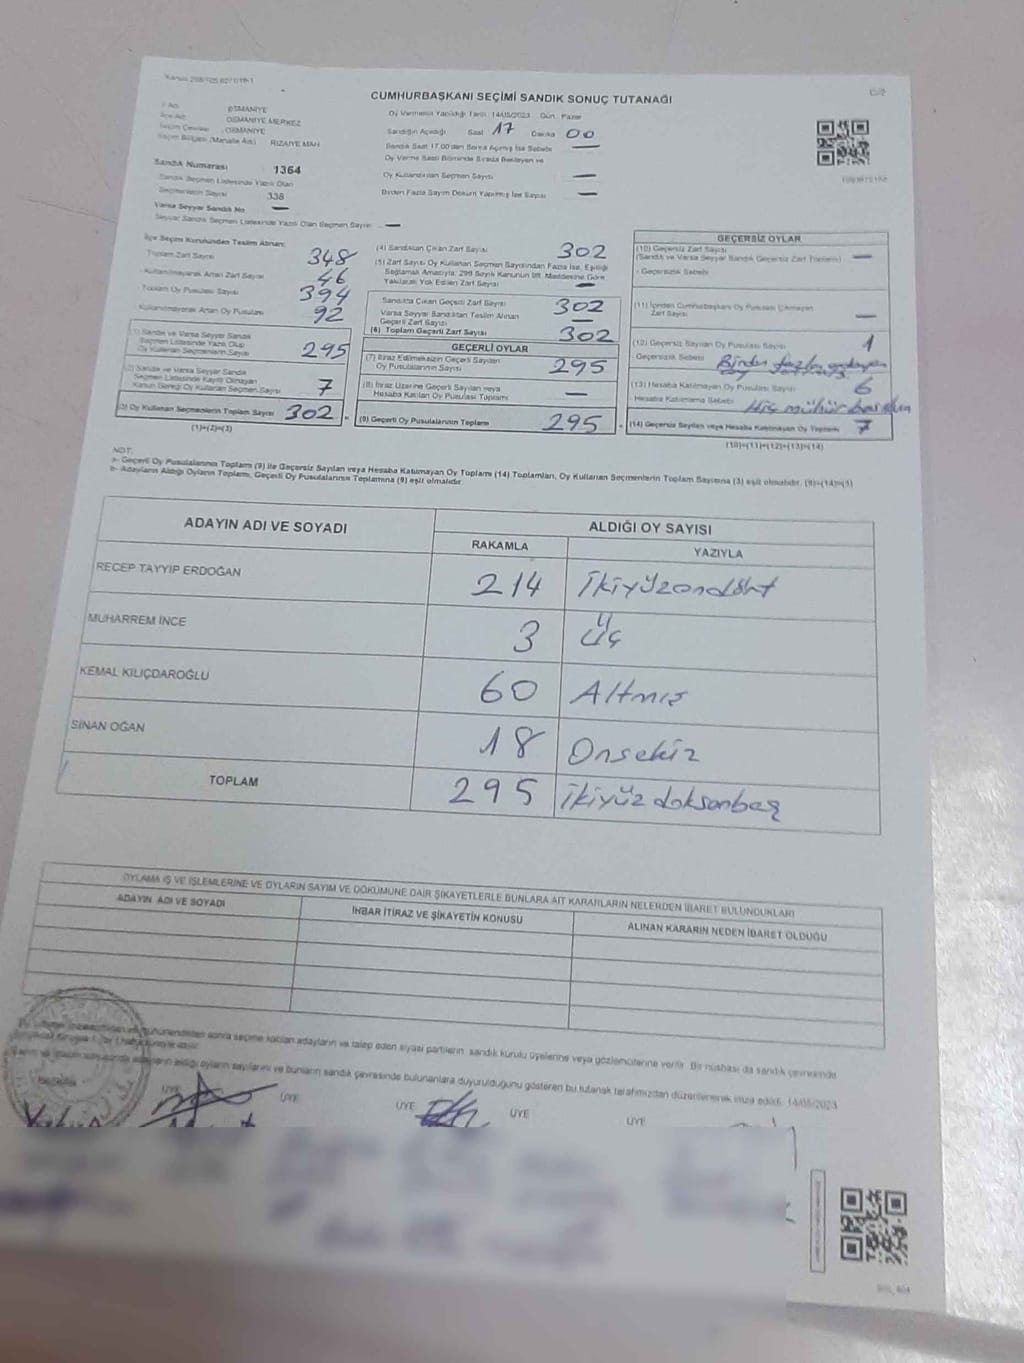 CUMHURBAŞKANI SEÇİMİ SANDIK SONUÇ TUTANAĞI
İl Adı: OSMANİYE
İlçe Adı: OSMANİYE MERKEZ
Seçim Çevresi: OSMANİYE
Seçim Bölgesi (Mahalle Adı): RIZAIYE MAH
Sandık Numarası 1364
Sandık Seçmen Listesinde Yazılı Olan
Seçmenlerin Sayısı 338
Varsa Seyyar Sandık No —
Seyyar Sandık Seçmen Listesinde Yazılı Olan Seçmen Sayısı —
Oy Vermenin Yapıldığı Tarih 14/05/2023 Gün: Pazar
Sandığın Açıldığı Saat 17 Dakika 00
Sandık Saat 17.00'dan Sonra Açılmış İse Sebebi —
Oy Verme Saati Bitiminde Sırada Bekleyen ve
Oy Kullandırılan Seçmen Sayısı —
Birden Fazla Sayım Döküm Yapılmış İse Sayısı —
İlçe Seçim Kurulundan Teslim Alınan;
Toplam Zarf Sayısı 348
Kullanılmayarak Artan Zarf Sayısı 46
Toplam Oy Pusulası Sayısı 394
Kullanılmayarak Artan Oy Pusulası 92
(1) Sandık ve Varsa Seyyar Sandık
Seçmen Listesinde Yazılı Olup
Oy Kullanan Seçmenlerin Sayısı 295
(2) Sandık ve Varsa Seyyar Sandık
Seçmen Listesinde Kayıtlı Olmayan
Kanun Gereği Oy Kullanan Seçmen Sayısı 7
(3) Oy Kullanan Seçmenlerin Toplam Sayısı 302
(1)+(2)=(3)
(4) Sandıktan Çıkan Zarf Sayısı 302
(5) Zarf Sayısı Oy Kullanan Seçmen Sayısından Fazla İse, Eşitliği
Sağlamak Amacıyla, 298 Sayılı Kanunun 98. Maddesine Göre
Yakılarak Yok Edilen Zarf Sayısı —
Sandıkta Çıkan Geçerli Zarf Sayısı 302
Varsa Seyyar Sandıktan Teslim Alınan
Geçerli Zarf Sayısı —
(6) Toplam Geçerli Zarf Sayısı 302
GEÇERLİ OYLAR
(7) İtiraz Edilmeksizin Geçerli Sayılan
Oy Pusulalarının Sayısı 295
(8) İtiraz Üzerine Geçerli Sayılan veya
Hesaba Katılan Oy Pusulası Toplamı —
(9) Geçerli Oy Pusulalarının Toplamı 295
GEÇERSİZ OYLAR
(10) Geçersiz Zarf Sayısı
(Sandık ve Varsa Seyyar Sandık Geçersiz Zarf Toplamı) —
- Geçersizlik Sebebi
(11) İçinden Cumhurbaşkanı Oy Pusulası Çıkmayan
Zarf Sayısı —
(12) Geçersiz Sayılan Oy Pusulası Sayısı 1
Geçersizlik Sebebi Birden fazla
(13) Hesaba Katılmayan Oy Pusulası Sayısı 6
- Hesaba Katılmama Sebebi Hiç mühür
(14) Geçersiz Sayılan veya Hesaba Katılmayan Oy Toplamı 7
(10)+(11)+(12)+(13)=(14)
NOT:
a- Geçerli Oy Pusulalarının Toplamı (9) ile Geçersiz Sayılan veya Hesaba Katılmayan Oy Toplamı (14) Toplamları, Oy Kullanan Seçmenlerin Toplam Sayısına (3) eşit olmalıdır. (9)+(14)=(3)
b- Adayların Aldığı Oyların Toplamı, Geçerli Oy Pusulalarının Toplamına (9) eşit olmalıdır.
ADAYIN ADI VE SOYADI ALDIĞI OY SAYISI
RAKAMLA YAZIYLA
RECEP TAYYİP ERDOĞAN 214 İkiyüzondört
MUHARREM İNCE 3 Üç
KEMAL KILIÇDAROĞLU 60 Altmış
SİNAN OĞAN 18 Onsekiz
TOPLAM 295 ikiyüz doksanbeş
OYLAMA İŞ VE İŞLEMLERİNE VE OYLARIN SAYIM VE DÖKÜMÜNE DAİR ŞİKAYETLERLE BUNLARA AİT KARARLARIN NELERDEN İBARET BULUNDUKLARI
ADAYIN ADI VE SOYADI İHBAR İTİRAZ VE ŞİKAYETİN KONUSU ALINAN KARARIN NEDEN İBARET OLDUĞU
sonra seçime katılan adayların ve talep eden siyasi partilerin sandık kurulu üyelerine veya gözlemcilerine verilir. Bir nüshası da sandık çevresinde
adayların aldığı oyların sayılarını ve bunların sandık çevresinde bulunanlara duyurulduğunu gösteren bu tutanak tarafımızdan düzenlenerek imza edildi. 14/05/2023
ÜYE ÜYE ÜYE ÜYE ÜYE